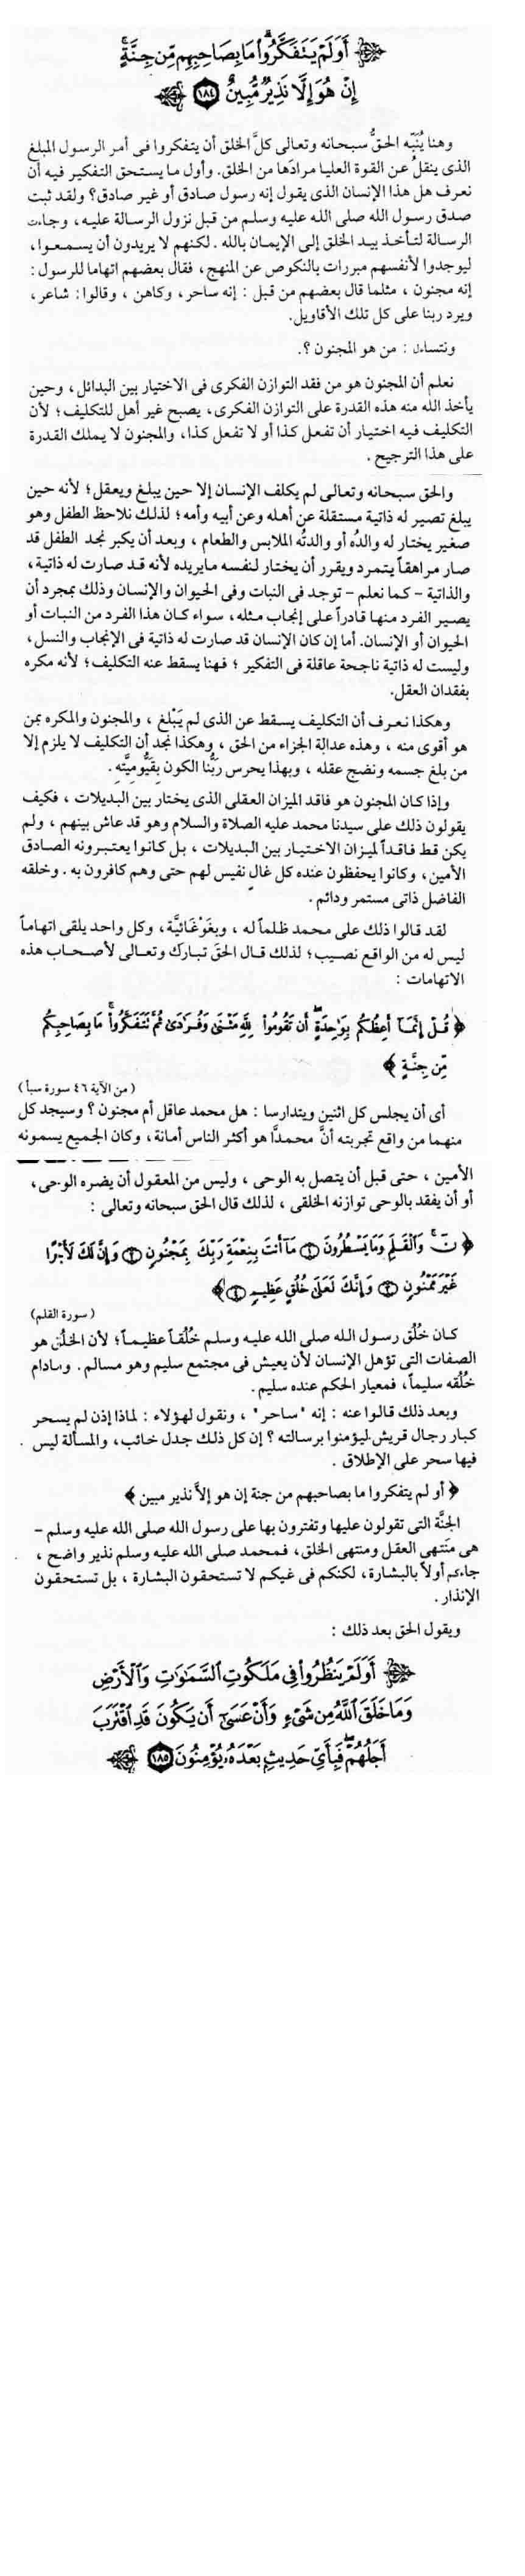 أَوَلَمْ يَتَفَكَّرُوا۟ مَا بِصَاحِبِهِم مِّن جِنَّةٍ ۚ
إِنْ هُوَ إِلَّا نَذِيرٌ مُّبِينٌ ١٨٤
وهنا يُنَبِّه الحقُّ سبحانه وتعالى كلَّ الخلق أن يتفكروا فى أمر الرسول المبلغ
الذى ينقلُ عن القوة العليا مرادَها من الخلق. وأول ما يستحق التفكير فيه أن
نعرف هل هذا الإنسان الذى يقول إنه رسول صادق أو غير صادق؟ ولقد ثبت
صدق رسول الله صلى الله عليه وسلم من قبل نزول الرسالة عليه، وجاءت
الرسالة لتأخذ بيد الخلق إلى الإيمان بالله . لكنهم لا يريدون أن يسمعوا،
ليوجدوا لأنفسهم مبررات بالنكوص عن المنهج، فقال بعضهم اتهاما للرسول :
إنه مجنون ، مثلما قال بعضهم من قبل : إنه ساحر، وكاهن ، وقالوا: شاعر،
ويرد ربنا على كل تلك الأقاويل.
ونتساءل : من هو المجنون ؟.
نعلم أن المجنون هو من فقد التوازن الفكرى فى الاختيار بين البدائل، وحين
يأخذ الله منه هذه القدرة على التوازن الفكرى، يصبح غير أهل للتكليف؛ لأن
التكليف فيه اختيار أن تفعل كذا أو لا تفعل كذا، والمجنون لا يملك القدرة
على هذا الترجيح .
والحق سبحانه وتعالى لم يكلف الإنسان إلا حين يبلغ ويعقل؛ لأنه حين
يبلغ تصير له ذاتية مستقلة عن أهله وعن أبيه وأمه؛ لذلك نلاحظ الطفل وهو
صغير يختار له والدُه أو والدتُه الملابس والطعام ، وبعد أن يكبر نجد الطفل قد
صار مراهقاً يتمرد ويقرر أن يختار لنفسه مايريده لأنه قد صارت له ذاتية،
والذاتية – كما نعلم – توجد فى النبات وفى الحيوان والإنسان وذلك بمجرد أن
يصير الفرد منها قادراً على إنجاب مثله، سواء كان هذا الفرد من النبات أو
الحيوان أو الإنسان. أما إن كان الإنسان قد صارت له ذاتية فى الإنجاب والنسل،
وليست له ذاتية ناجحة عاقلة فى التفكير ؛ فهنا يسقط عنه التكليف؛ لأنه مكره
بفقدان العقل.
وهكذا نعرف أن التكليف يسقط عن الذى لم يَبْلغ ، والمجنون والمكره بمن
هو أقوى منه ، وهذه عدالة الجزاء من الحق ، وهكذا نجد أن التكليف لا يلزم إلا
من بلغ جسمه ونضج عقله ، وبهذا يحرس ربُّنا الكون بِقَيُّوميَّتِهِ .
وإذا كان المجنون هو فاقد الميزان العقلى الذى يختار بين البديلات ، فكيف
يقولون ذلك على سيدنا محمد عليه الصلاة والسلام وهو قد عاش بينهم ، ولم
يكن قط فاقداً لميزان الاختيار بين البديلات ، بل كانوا يعتبرونه الصادق
الأمين، وكانوا يحفظون عنده كل غالٍ نفيس لهم حتى وهم كافرون به . وخلقه
الفاضل ذاتى مستمر ودائم .
لقد قالوا ذلك على محمد ظلماً له ، وبغَوْغَائيَّة، وكل واحد يلقى اتهاماً
ليس له من الواقع نصيب؛ لذلك قال الحق تبارك وتعالى لأصحاب هذه
الاتهامات :
﴿ قُلْ إِنَّمَآ أَعِظُكُم بِوَٰحِدَةٍ ۖ أَن تَقُومُوا۟ لِلَّهِ مَثْنَىٰ وَفُرَٰدَىٰ ثُمَّ تَتَفَكَّرُوا۟ ۚ مَا بِصَاحِبِكُم
مِّن جِنَّةٍ ﴾
(من الآية ٤٦ سورة سبأ)
أى أن يجلس كل اثنين ويتدارسا : هل محمد عاقل أم مجنون ؟ وسيجد كل
منهما من واقع تجربته أنَّ محمداً هو أكثر الناس أمانة، وكان الجميع يسمونه
الأمين ، حتى قبل أن يتصل به الوحى ، وليس من المعقول أن يضره الوحى،
أو أن يفقد بالوحى توازنه الخلقى ، لذلك قال الحق سبحانه وتعالى :
﴿ نٓ ۚ وَٱلْقَلَمِ وَمَا يَسْطُرُونَ ١ مَآ أَنتَ بِنِعْمَةِ رَبِّكَ بِمَجْنُونٍ ٢ وَإِنَّ لَكَ لَأَجْرًا
غَيْرَ مَمْنُونٍ ٣ وَإِنَّكَ لَعَلَىٰ خُلُقٍ عَظِيمٍ ٤ ﴾
(سورة القلم)
كان خُلُق رسول الله صلى الله عليه وسلم خُلُقاً عظيماً؛ لأن الخلُق هو
الصفات التى تؤهل الإنسان لأن يعيش فى مجتمع سليم وهو مسالم . ومادام
خُلُقه سليماً، فمعيار الحكم عنده سليم .
وبعد ذلك قالوا عنه : إنه "ساحر" ، ونقول لهؤلاء : لماذا إذن لم يسحر
كبار رجال قريش ليؤمنوا برسالته ؟ إن كل ذلك جدل خائب، والمسألة ليس
فيها سحر على الإطلاق .
﴿ أو لم يتفكروا ما بصاحبهم من جنة إن هو إلاَّ نذير مبين ﴾
الجنَّة التى تقولون عليها وتفترون بها على رسول الله صلى الله عليه وسلم –
هى منتهى العقل ومنتهى الخلق، فمحمد صلى الله عليه وسلم نذير واضح ،
جاءكم أولاً بالبشارة، لكنكم فى غيكم لا تستحقون البشارة ، بل تستحقون
الإنذار .
ويقول الحق بعد ذلك :
أَوَلَمْ يَنظُرُوا۟ فِى مَلَكُوتِ ٱلسَّمَٰوَٰتِ وَٱلْأَرْضِ
وَمَا خَلَقَ ٱللَّهُ مِن شَىْءٍ وَأَنْ عَسَىٰٓ أَن يَكُونَ قَدِ ٱقْتَرَبَ
أَجَلُهُمْ ۖ فَبِأَىِّ حَدِيثٍۭ بَعْدَهُۥ يُؤْمِنُونَ ١٨٥